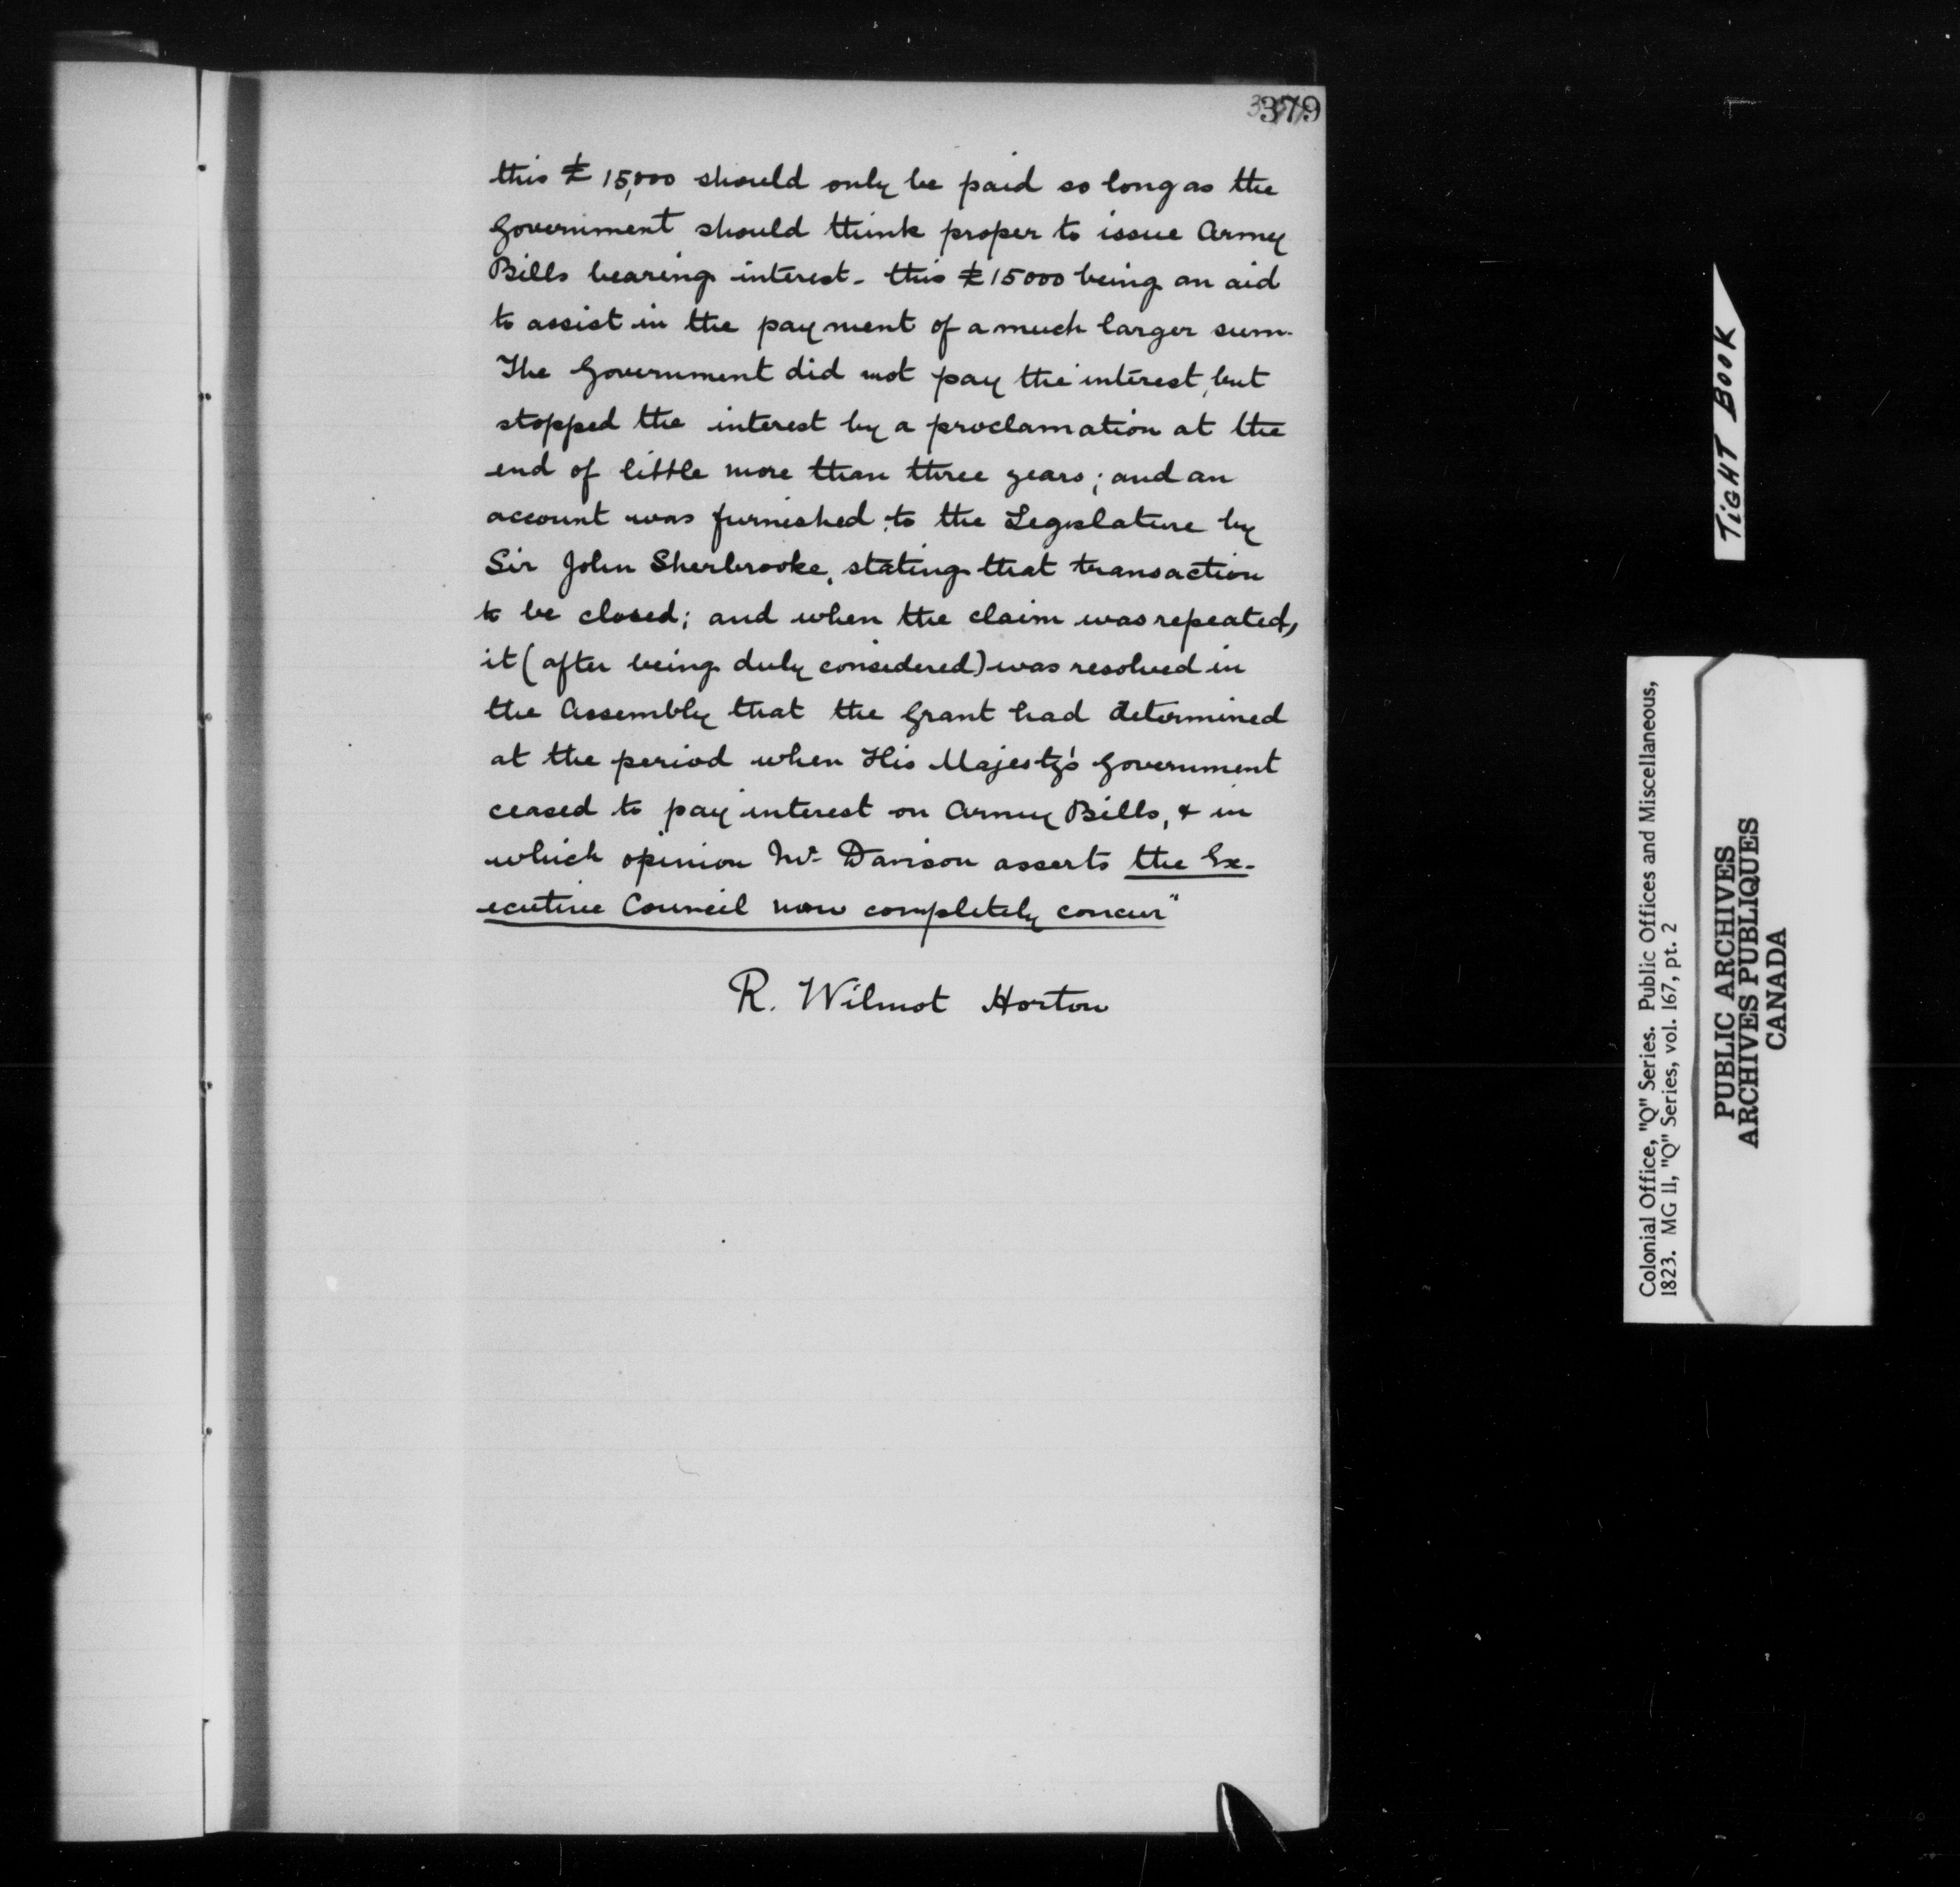 379
this £15,000 should only be paid so long as the
Government should think proper to issue Army
Bills bearing interest - this £15000 being an aid
to assist in the payment of a much larger sum.
The Government did not pay the interest, but
stopped the interest by a proclamation at the
end of little more than three years; and an
account was furnished to the Legislature by
Sir John Sherbrooke, stating that transaction
to be closed; and when the claim was repeated,
it (after being duly considered) was resolved in
the Assembly that the Grant had determined
at the period when His Majesty's Government
ceased to pay interest on Army Bills, & in
which opinion Mr. Davison asserts the Ex-
ecutive Council now completely concur"
R. Wilmot Horton
TIGHT BOOK
Colonial Office, "Q" Series. Public Offices and Miscellaneous,
1823. MG 11, "Q" Series, vol. 167, pt. 2
PUBLIC ARCHIVES
ARCHIVES PUBLIQUES
CANADA